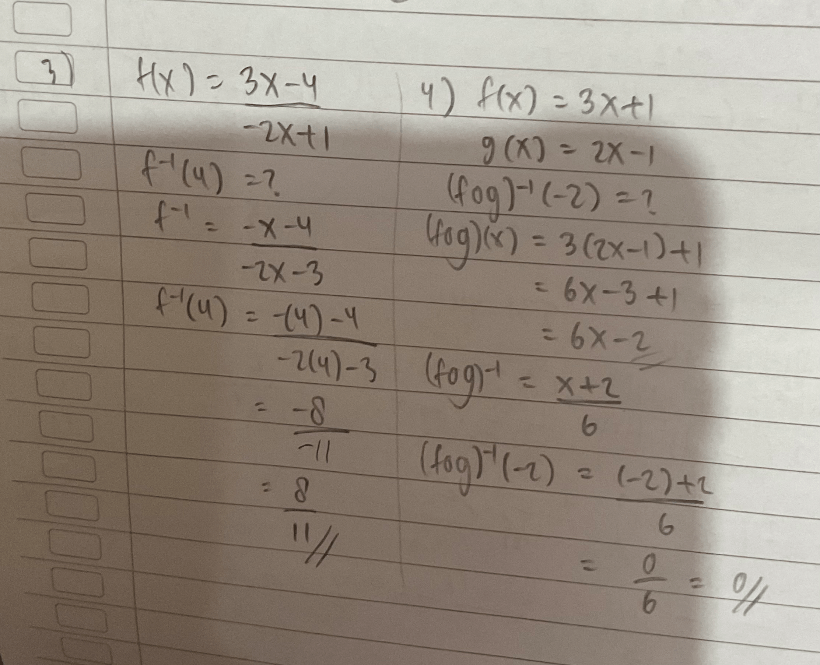 3) f(x) = 3x-4
-2x+1
f⁻¹(4) = ?
f⁻¹ = -x-4
-2x-3
f⁻¹(4) = -(4)-4
-2(4)-3
= -8
-11
= 8
11//
4) f(x) = 3x+1
g(x) = 2x-1
(fog)⁻¹(-2) = ?
(fog)(x) = 3(2x-1)+1
= 6x-3+1
= 6x-2//
(fog)⁻¹ = x+2
6
(fog)⁻¹(-2) = (-2)+2
6
= 0 = 0//
6